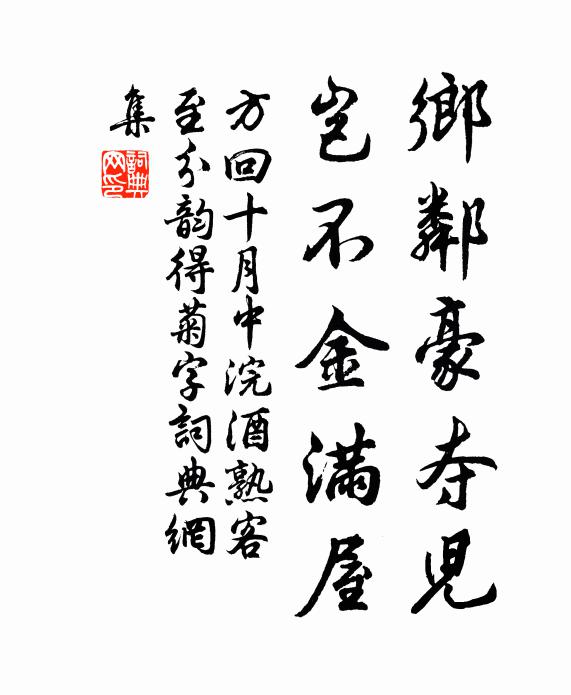 鄉鄰豪夺児
岂不金滿屋
方回十月中浣酒熟客
至分韵得菊字詞典網
集
詞典网印